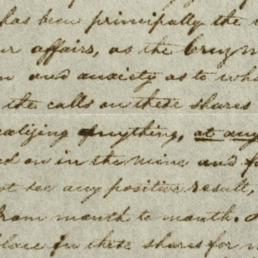 has been principally the
affairs, as the
and anxiety as to wha
the calls on these shares
anything, at any
ed on in the mine and f
ot see any positive result,
from month to month.
place in these shares for